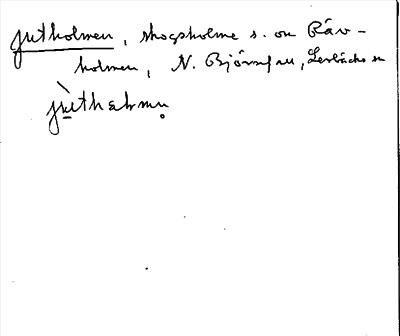 Jutholmen, skogsholme s. om Räv-
holmen, N. Björnfall, Lerbäcks sn
juthåhmn